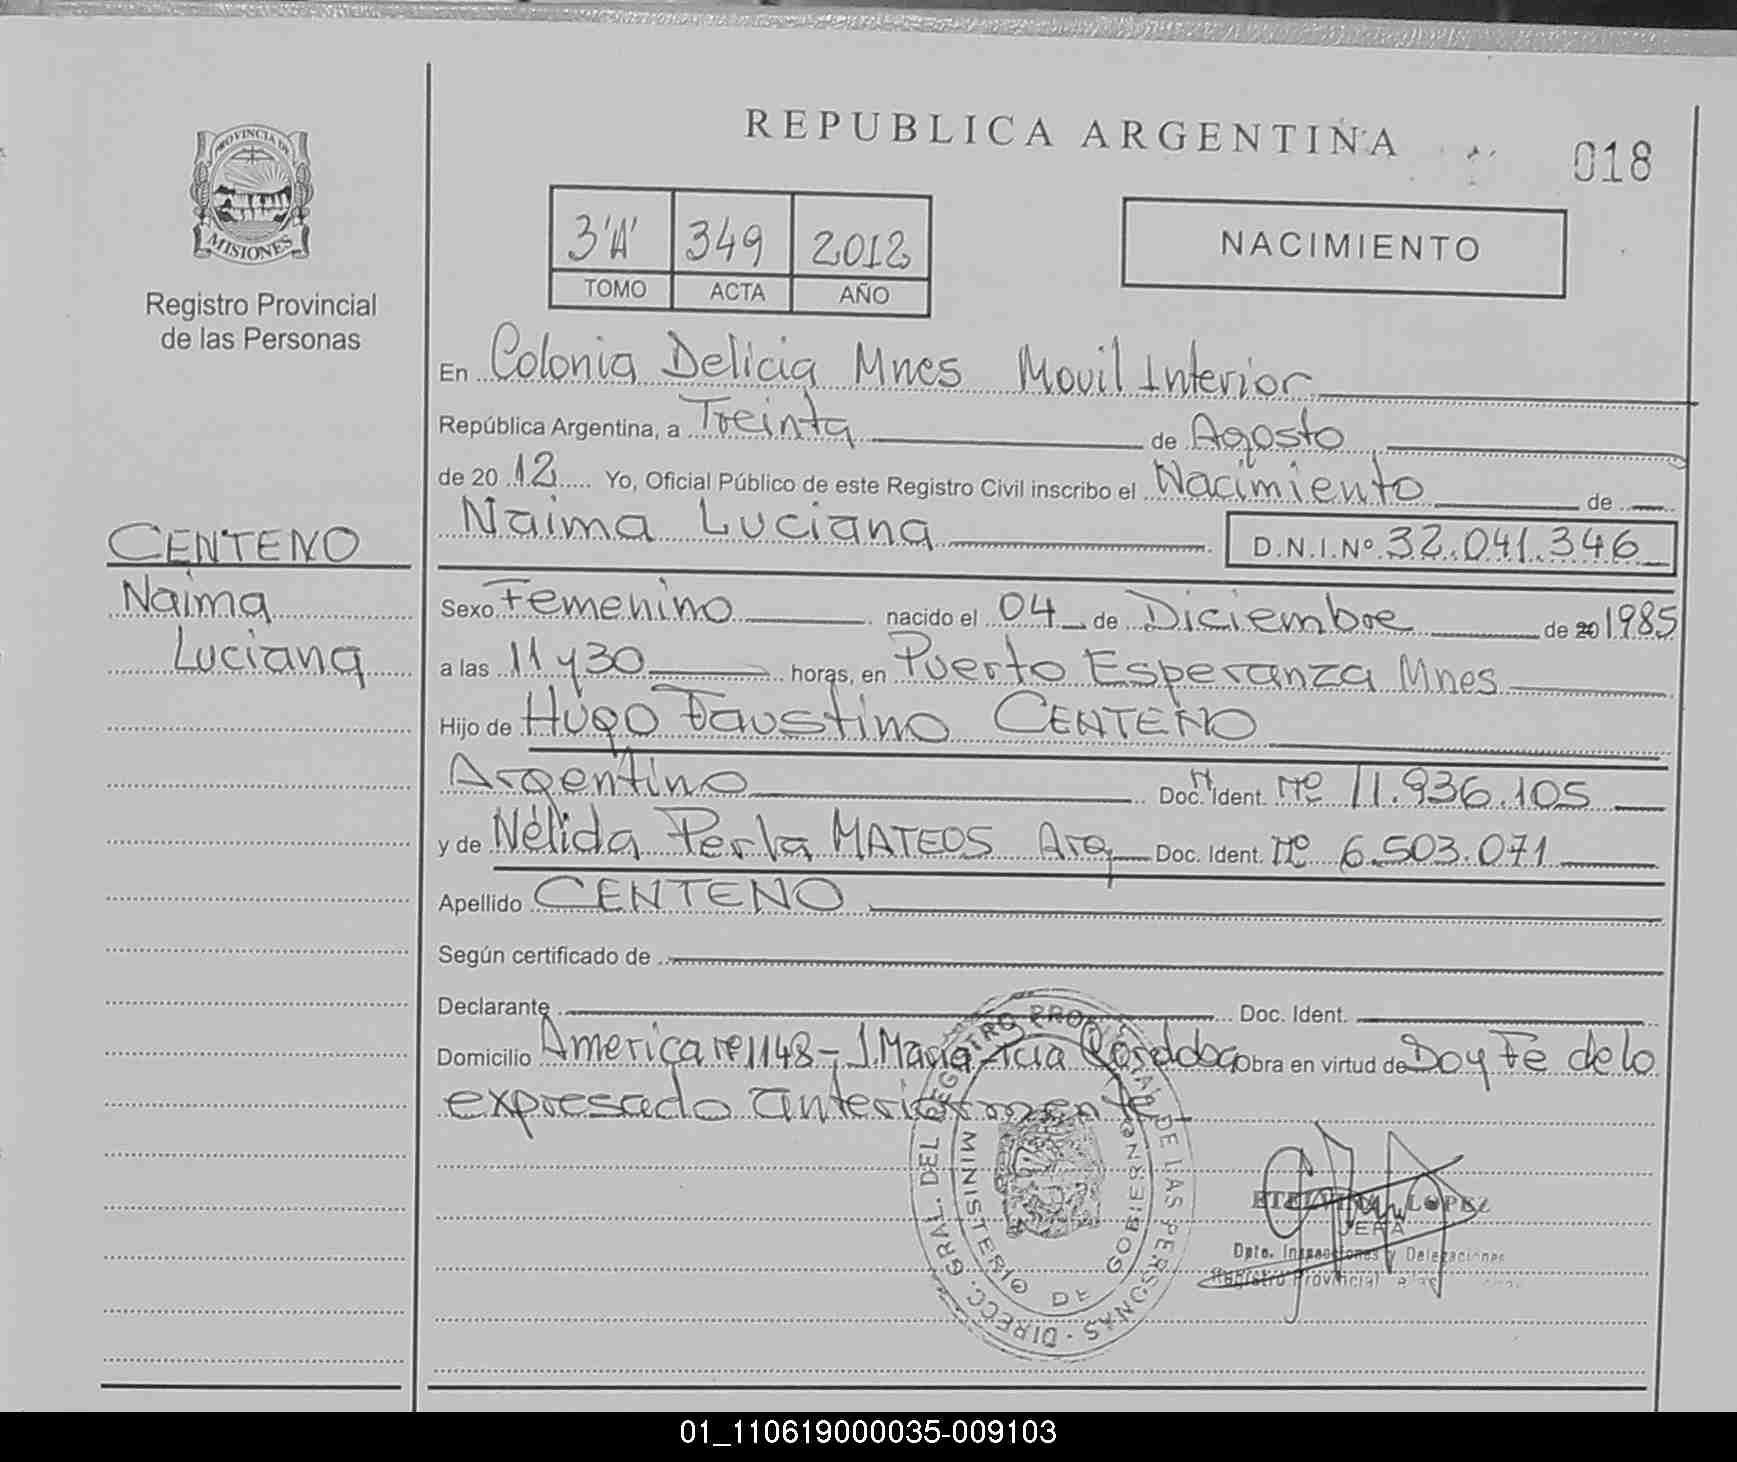 REPUBLICA ARGENTINA
018
PROVINCIA DE
MISIONES
Registro Provincial
de las Personas
3"A" 349 2012
TOMO ACTA AÑO
NACIMIENTO
En Colonia Delicia Mnes Movil Interior
República Argentina, a Treinta de Agosto
de 20 12 Yo, Oficial Público de este Registro Civil inscribo el Nacimiento de
Naima Luciana D.N.I.Nº 32.041.346
CENTENO
Naima
Luciana
Sexo Femenino nacido el 04 de Diciembre de 20 1985
a las 11 y 30 horas, en Puerto Esperanza Mnes
Hijo de Hugo Faustino CENTENO
Argentino Doc. Ident. Nº 11.936.105
y de Nélida Perla MATEOS Arg Doc. Ident. Nº 6.503.071
Apellido CENTENO
Según certificado de
Declarante Doc. Ident.
Domicilio America Nº 1148 - J. Maria Cordoba Obra en virtud de Doy Fe de lo
expresado anteriormente
DIRECC. GRAL. DEL REGISTRO PROVINCIAL DE LAS PERSONAS
MINISTERIO DE GOBIERNO
ETELVINA LOPEZ
JEFA
Dpto. Inspecciones y Delegaciones
Registro Provincial
01_110619000035-009103